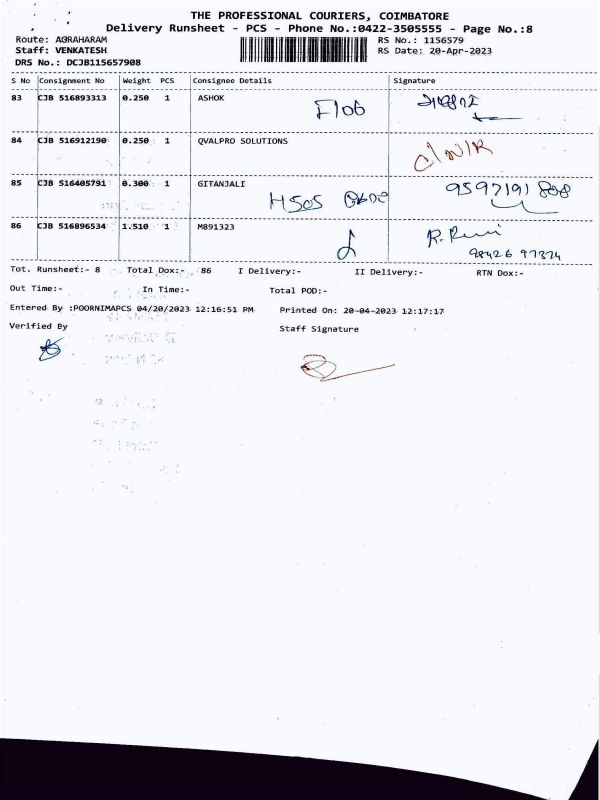 THE PROFESSIONAL COURIERS, COIMBATORE
Delivery Runsheet - PCS - Phone No.:0422-3505555 - Page No.:8
Route: AGRAHARAM RS No.: 1156579
Staff: VENKATESH RS Date: 20-Apr-2023
DRS No.: DCJB115657908
S No Consignment No Weight PCS Consignee Details Signature
83 CJB 516893313 0.250 1 ASHOK
F106
84 CJB 516912190 0.250 1 QVALPRO SOLUTIONS
C/N/R
85 CJB 516405791 0.300 1 GITANJALI 9597191808
H505
86 CJB 516896534 1.510 1 M891323
98426 97374
Tot. Runsheet:- 8 Total Dox:- 86 I Delivery:- II Delivery:- RTN Dox:-
Out Time:- In Time:- Total POD:-
Entered By :POORNIMAPCS 04/20/2023 12:16:51 PM Printed On: 20-04-2023 12:17:17
Verified By Staff Signature